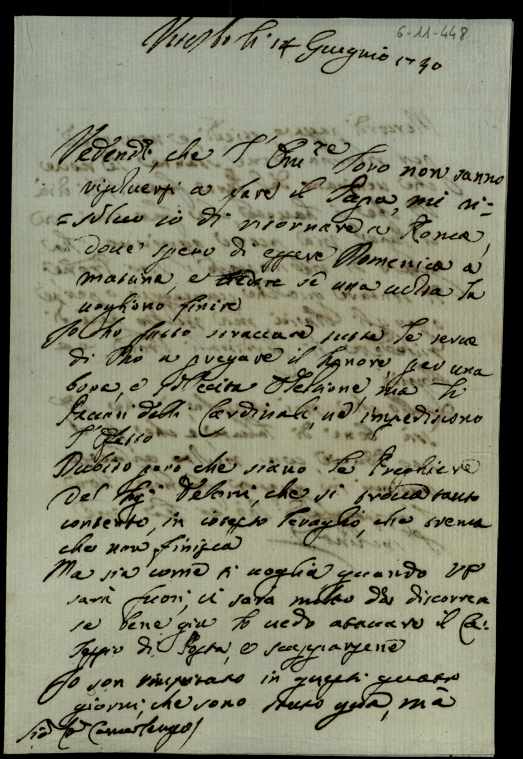 6-11-448
Viterbo li 14 Giugnio 1740
Vedendo, che l'Em.ze loro non sanno
risoluersi a fare il Papa, mi ri=
=soluo io di ritornare a Roma,
doue spero di essere Domenica a
matina, e uedere se una uolta la
uogliono finire
Io ho fatto straccare tutte le serue
di Dio a pregare il Signore per una
bona, e sollecita Elettione, ma li
Peccati delli Cardinali, ne impediscono
l'effetto
Dubito però che siano le Preghiere
del Sig.
contento, in che trema
che non finisca
Ma sia come si uoglia quando VS
sarà fuori, ci sarà molto da discorrere
se bene gia lo uedo attaccare il Ca=
di Posta, e scapparsene
Io son in questi quattro
giorni, che sono stato quà, mà
Sig.r Camerlengo